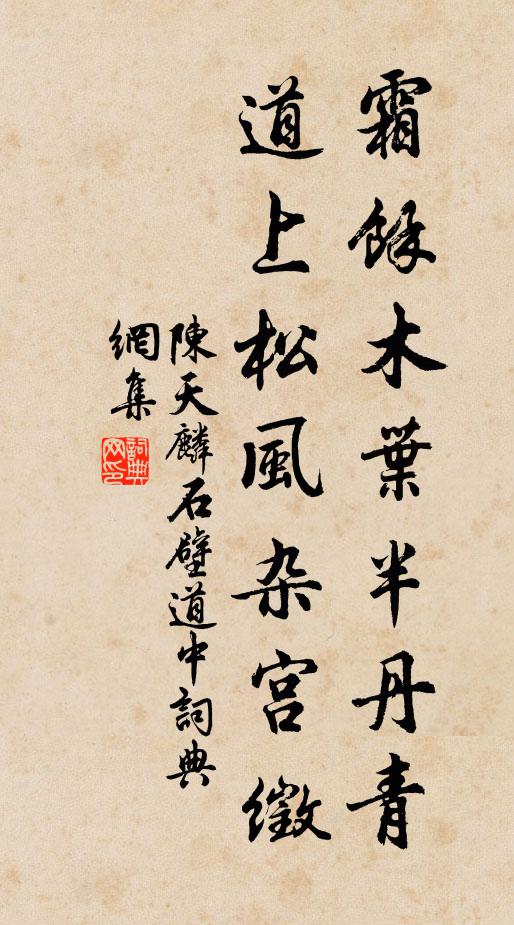 霜餘木葉半丹青
道上松風杂宫徵
陳天麟石壁道中詞典
網集
詞典
网印